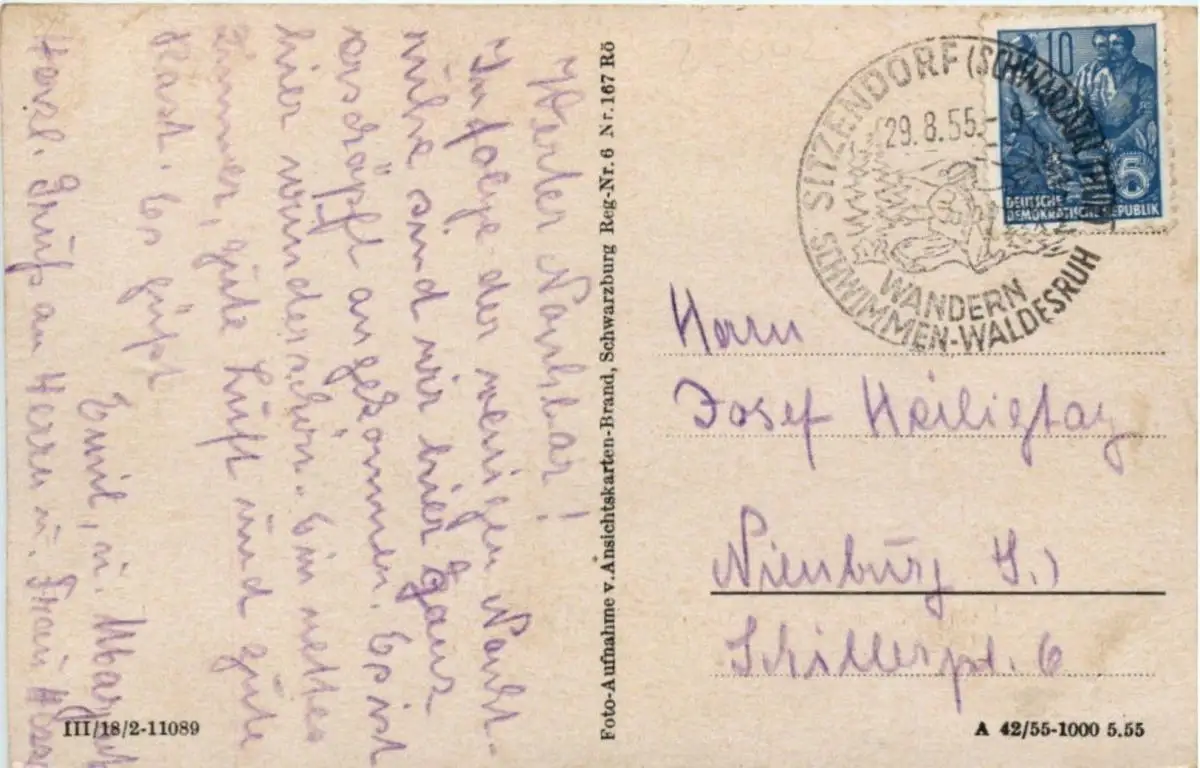 Werter Nachbar!
Infolge der wenigen Nacht-
ruhe sind wir hier ganz
erschöpft angekommen. Es ist
hier wunderschön. Ein nettes
Zimmer, gute Luft und gute
Kost. Es grüßt
Emil, u. Margret
Herzl. Gruß an Herrn u. Frau
Foto-Aufnahme v. Ansichtskarten-Brand, Schwarzburg Reg-Nr. 6 Nr. 167 Rö
III/18/2-11089
SITZENDORF (SCHWARZATAL/THÜR)
29.8.55 - 9
WANDERN
SCHWIMMEN-WALDESRUH
10
5
DEUTSCHE
DEMOKRATISCHE REPUBLIK
Herrn
Josef Heiligtag
Nienburg S.)
Schillerpl. 6
A 42/55-1000 5.55